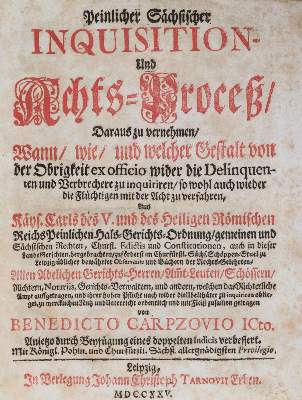 Peinlicher Sächsischer
INQUISITION-
Und
Achts-Proceß/
Daraus zu vernehmen/
Wann/ wie/ und welcher Gestalt von
der Obrigkeit ex officio wider die Delinquen-
ten und Verbrechere zu inquiriren/ so wohl auch wieder
die Flüchtigen mit der Acht zu verfahren,
Aus
Käys. Carls des V. und des Heiligen Römischen
Reichs Peinlichen Hals-Gerichts-Ordnung/ gemeinen und
Sächsischen Rechten, Churfl. Edictis und Constitutionen, auch in dieser
Lande Gerichten hergebrachten/ zuförderst im Churfürstl. Sächs. Schöppen-Stuel zu
Leipzig üblicher bewährter Observanz und Büchern der Rechts-Gelehrten/
Allen Adelichen Gerichts-Herren/ Amt-Leuten/ Schössern/
Richtern, Notariis, Gerichts-Verwaltern, und andern, welchen das Richterliche
Ampt aufgetragen, und ihrer hohen Pflicht nach wider die Ubelthäter zu inquiriren oblie-
get, zu mercklichem Nutz und Unterricht ordentlich und mit Fleiß zusammen getragen
von
BENEDICTO CARPZOVIO ICto.
Anietzo durch Beyfügung eines doppelten Indicis verbessert.
Mit Königl. Pohln. und Churfürstl. Sächs. allergnädigsten Privilegio.
Leipzig,
In Verlegung Johann Christoph TARNOVII Erben.
MDCCXXV.